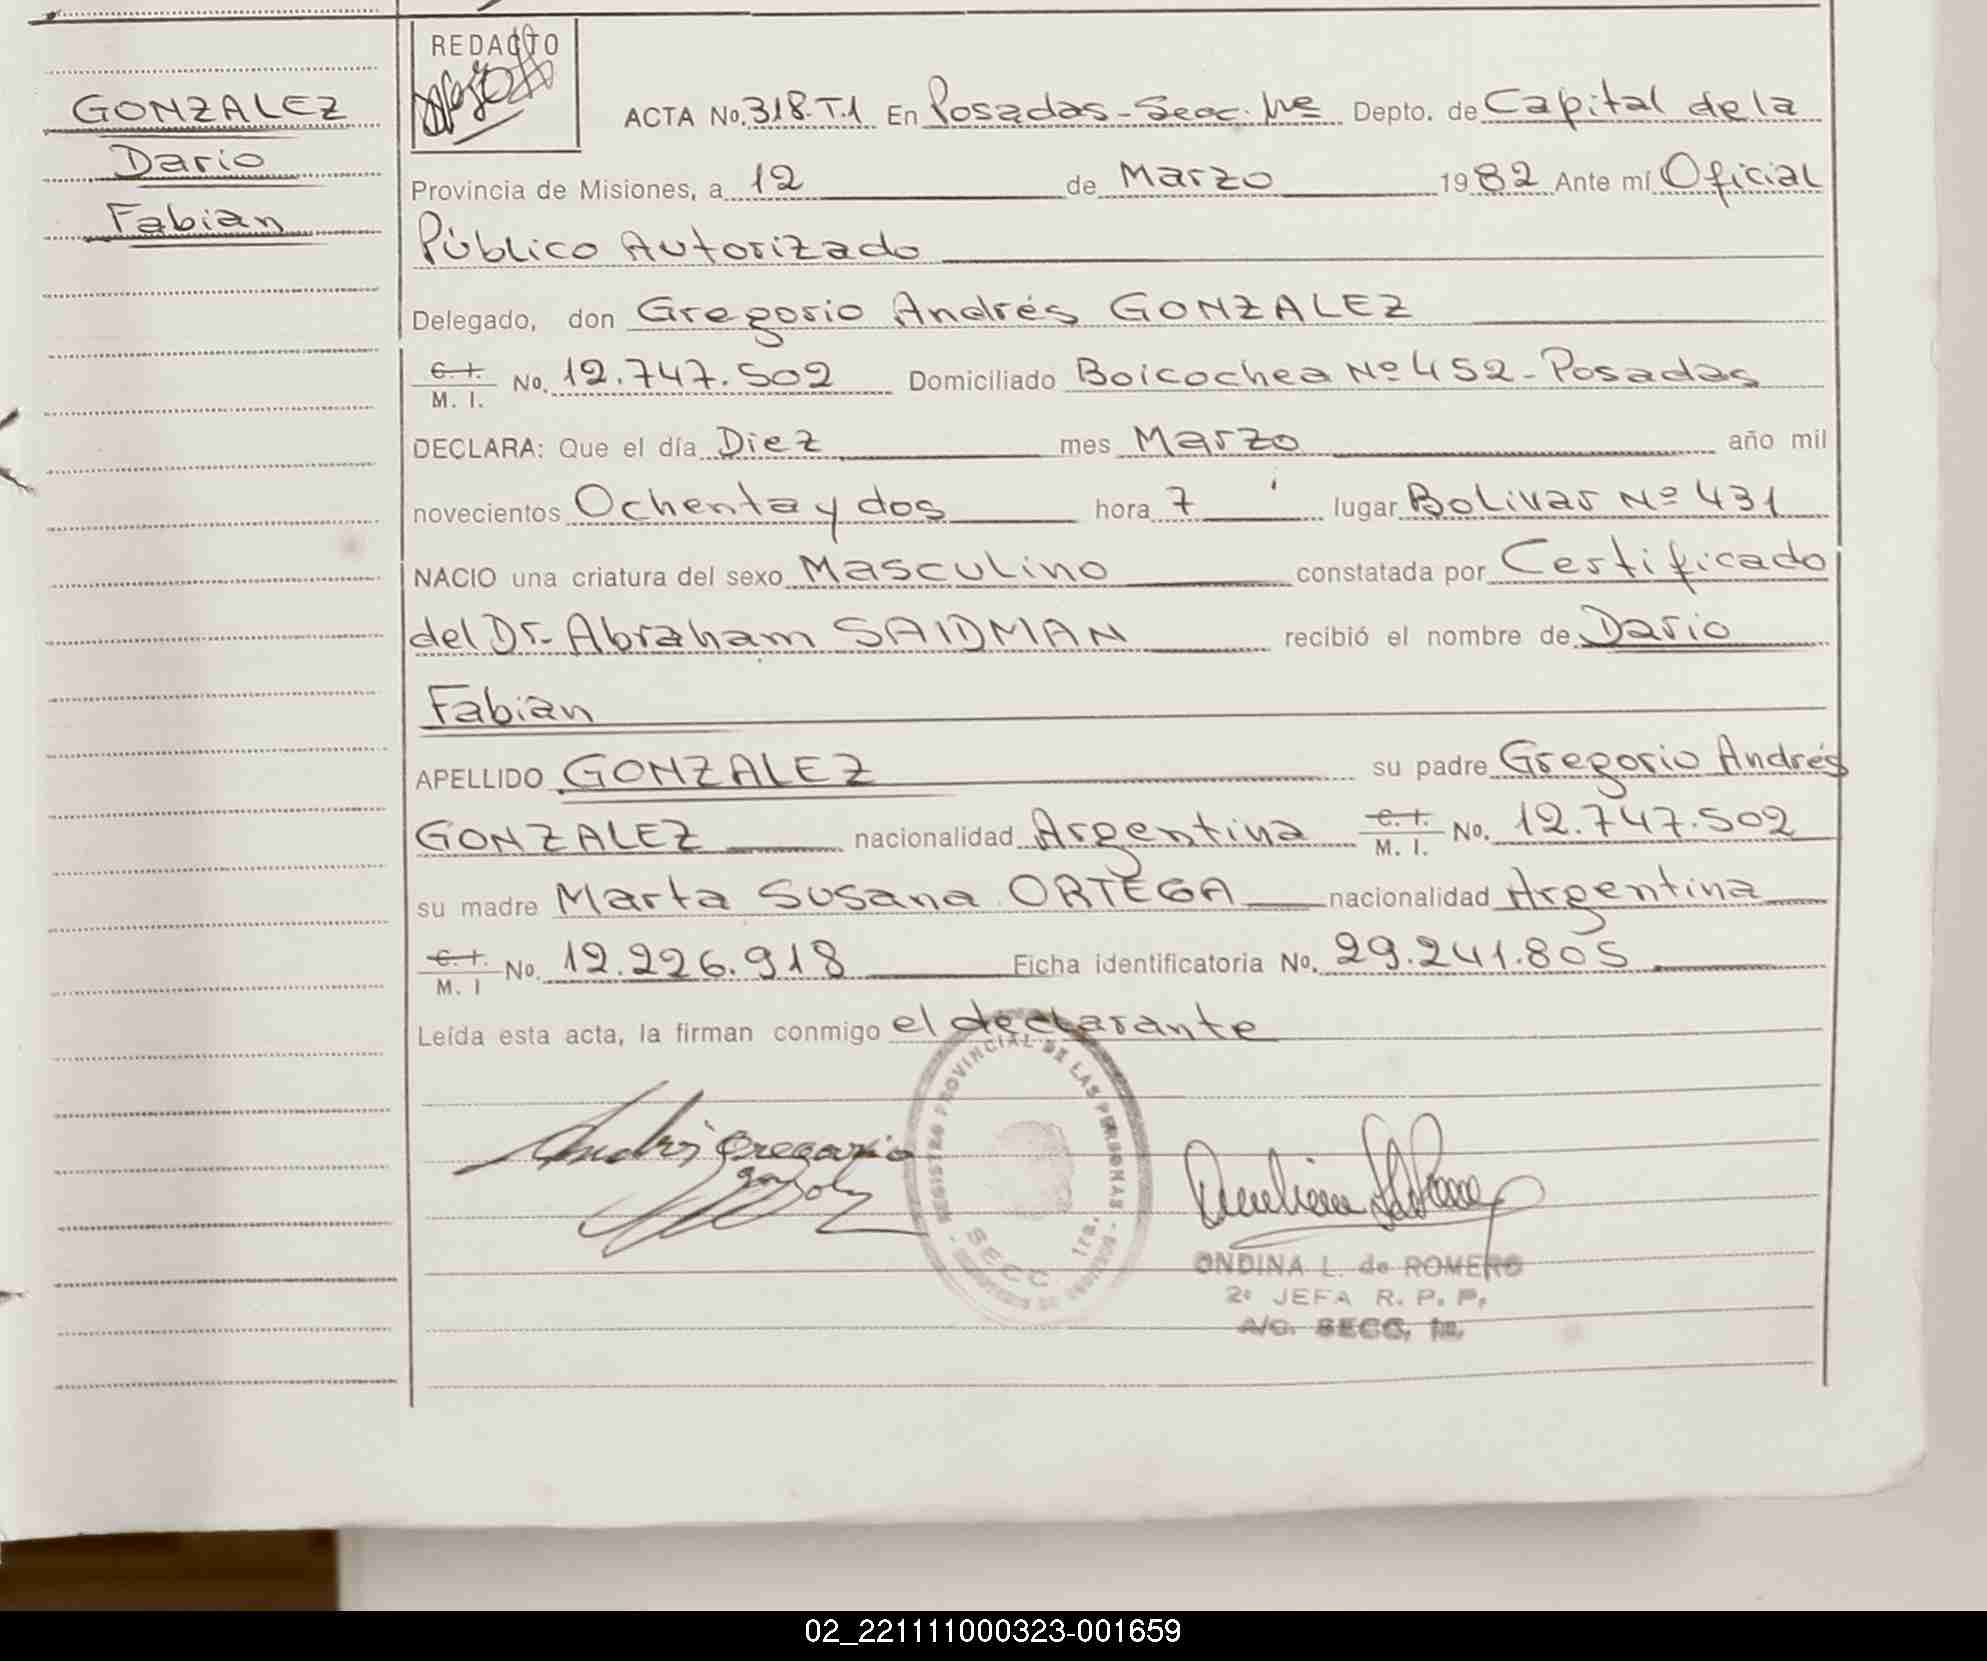 GONZALEZ
Dario
Fabian
REDACTO
ACTA No. 318-T.1 En Posadas-Secc. 1ra Depto. de Capital de la
Provincia de Misiones, a 12 de Marzo 1982 Ante mí Oficial
Público Autorizado
Delegado, don Gregorio Andrés GONZALEZ
C. I.
M. I. No. 12.747.502 Domiciliado Boicochea Nº 452-Posadas
DECLARA: Que el día Diez mes Marzo año mil
novecientos Ochenta y dos hora 7 lugar Bolivar Nº 431
NACIO una criatura del sexo Masculino constatada por Certificado
del Dr. Abraham SAIDMAN recibió el nombre de Dario
Fabian
APELLIDO GONZALEZ su padre Gregorio Andrés
GONZALEZ nacionalidad Argentina C. I. M. I. No. 12.747.502
su madre Marta Susana ORTEGA nacionalidad Argentina
C. I.
M. I No. 12.226.918 Ficha identificatoria No. 29.241.805
Leída esta acta, la firman conmigo el declarante
REGISTRO PROVINCIAL DE LAS PERSONAS
SECC. 1ra.
Andrés Gregorio
ONDINA L. de ROMERO
2º JEFA R. P. P.
A/C. SECC. 1ra.
02_221111000323-001659